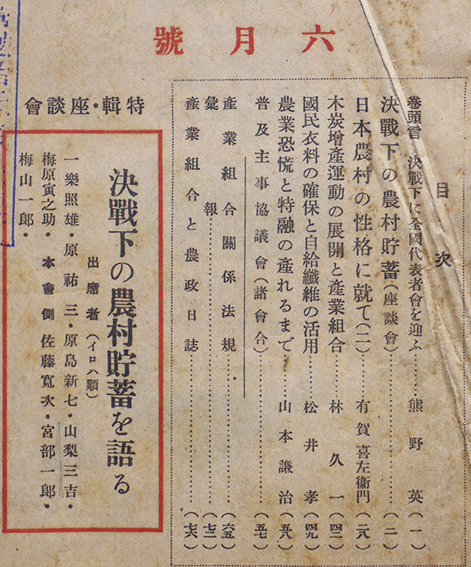 六月號
目次
卷頭言 決戰下に全國代表者會を迎ふ………熊野英(一)
決戰下の農村貯蓄(座談會)………(二)
日本農村の性格に就て(二)………有賀喜左衞門(二八)
木炭增產運動の展開と產業組合………林久一(四三)
國民衣料の確保と自給纖維の活用………松井孝(四九)
農業恐慌と特融の產れるまで………山本謙治(五八)
普及主事協議會(諸會合)………(五七)
產業組合關係法規………(六五)
彙報………(七三)
產業組合と農政日誌………(七六)
特輯・座談會
決戰下の農村貯蓄を語る
出席者(イロハ順)
一樂照雄・原祐三・原島新七・山梨三吉・
梅原寅之助・本會側 佐藤寬次・宮部一郎・
梅山一郎・